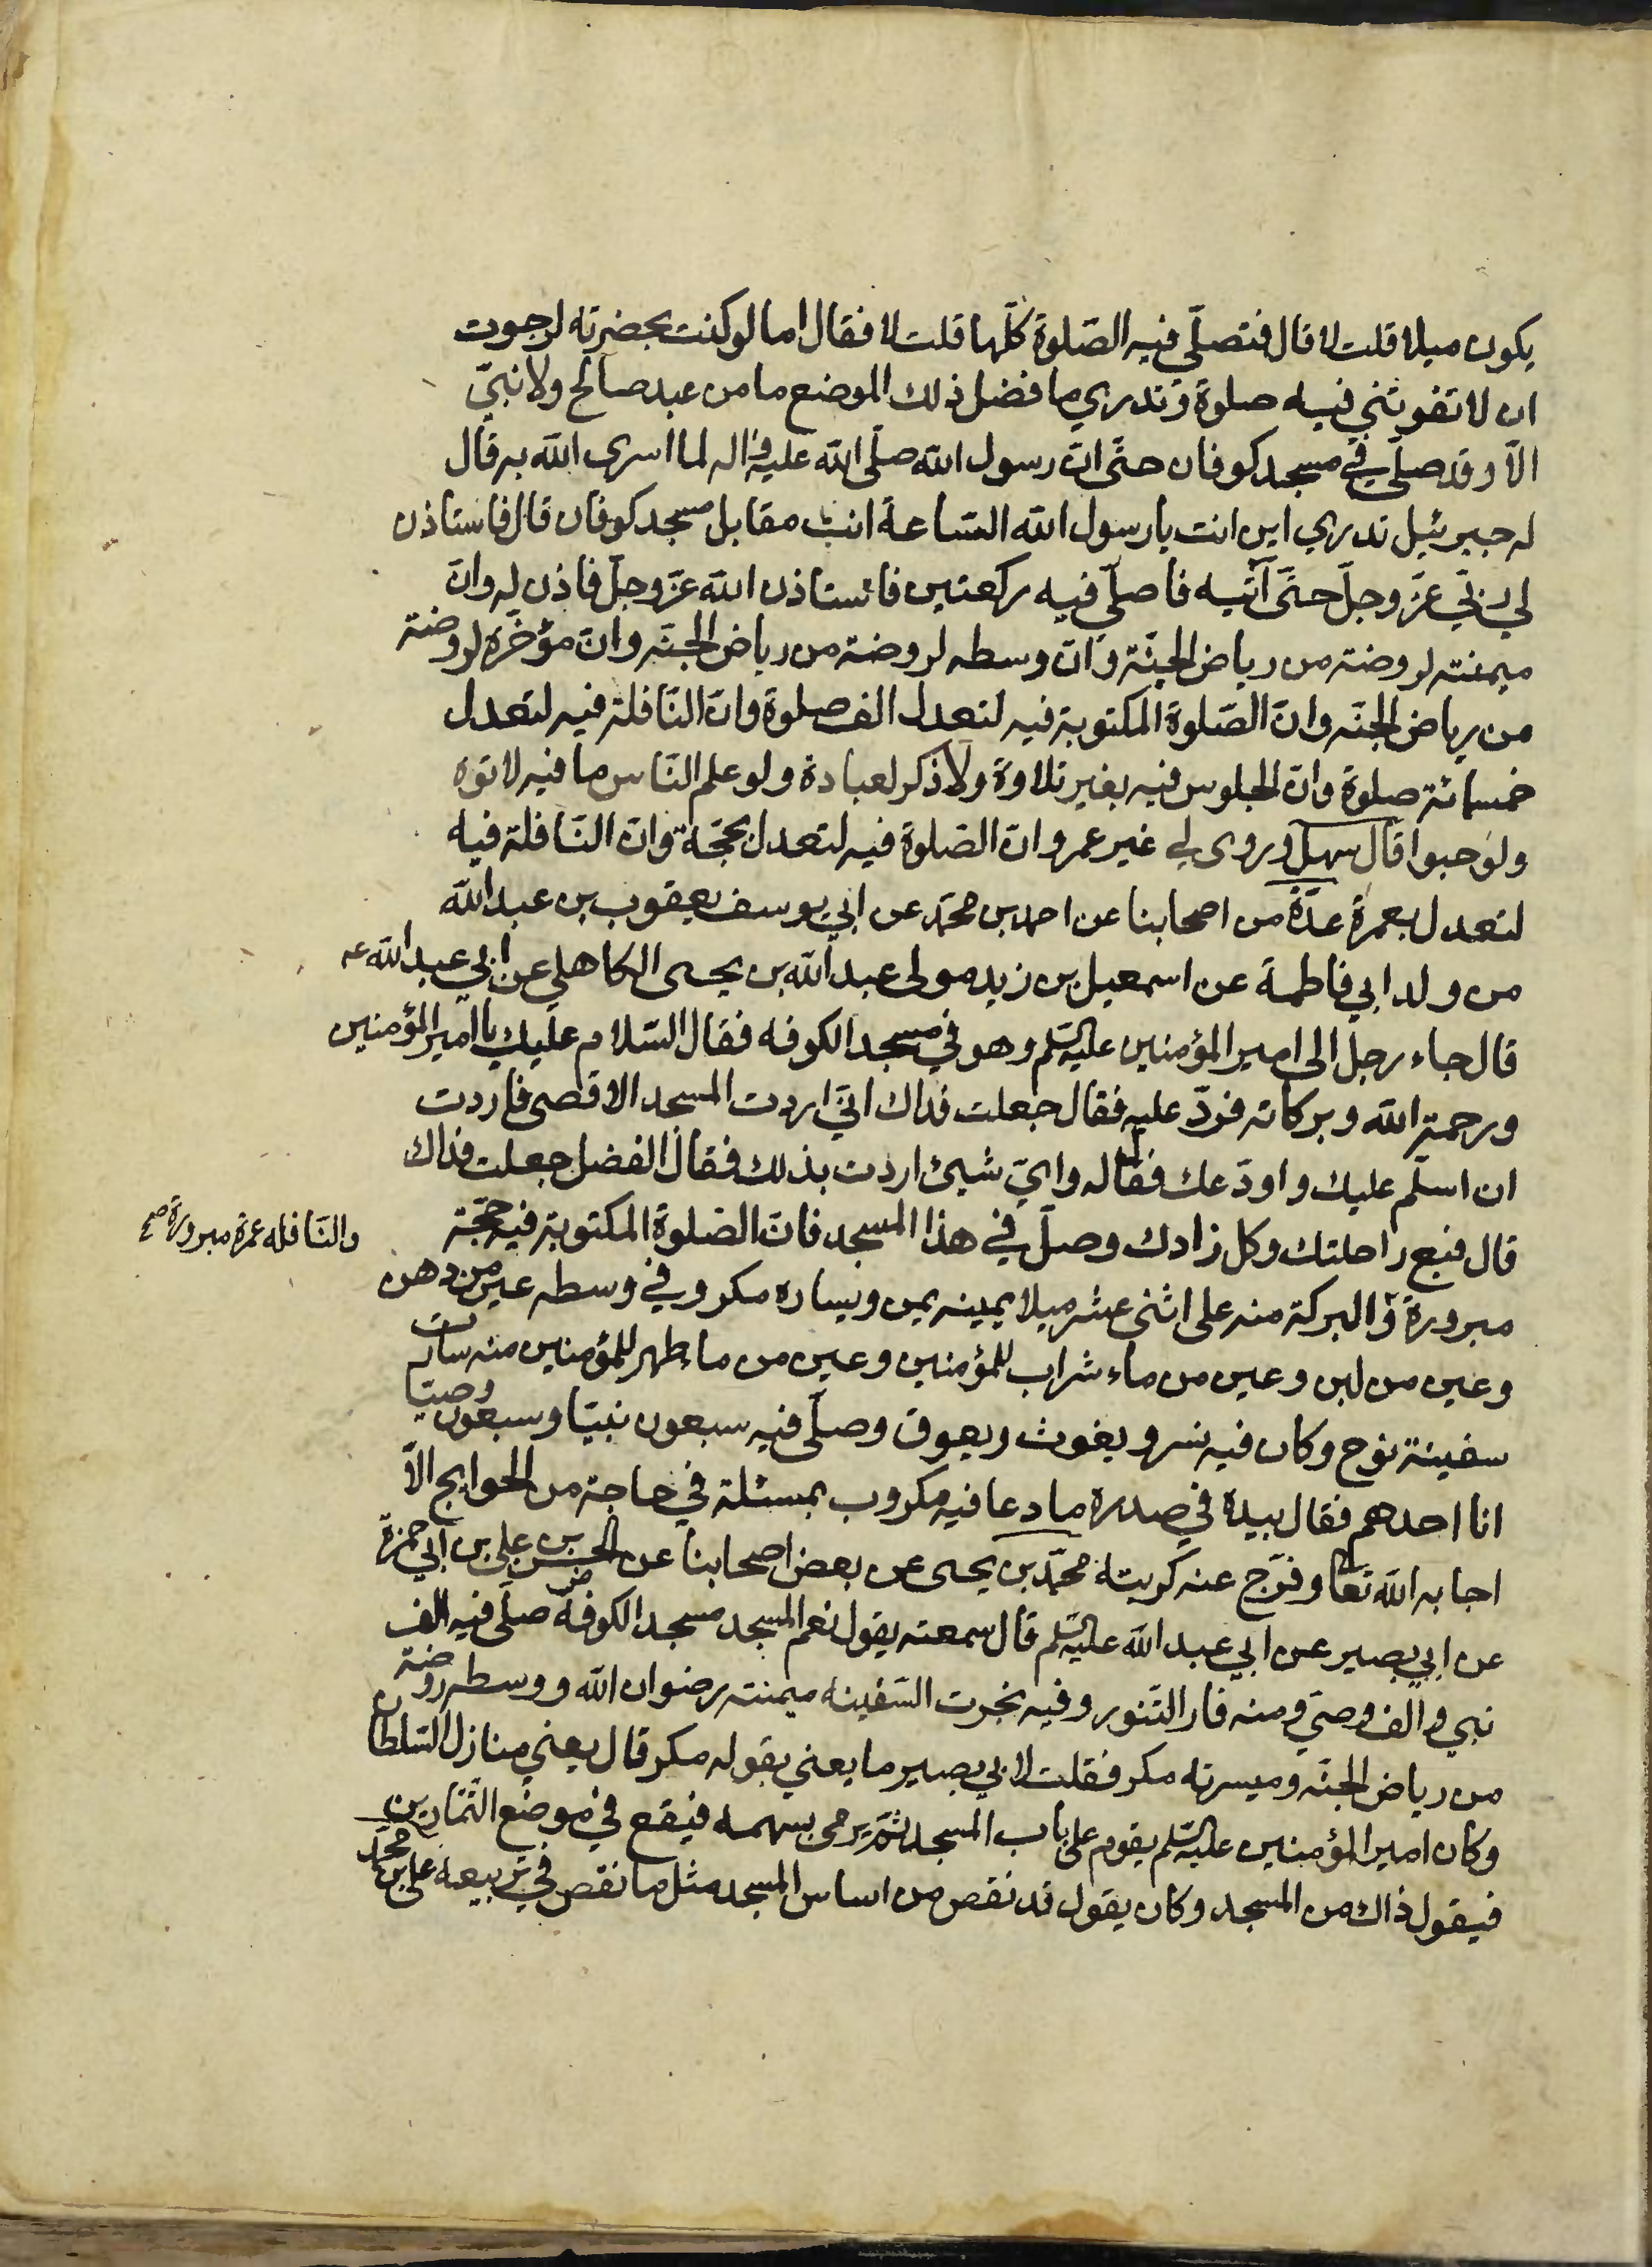 يكون ميلا قلت لا قال فتصلّي فيه الصّلوة كلّها قلت لا فقال اما لو كنت بحضرته لرجوت
ان لا تفوتني فيه صلوة وتدري ما فضل ذلك الموضع ما من عبد صالح ولا نبيّ
الّا وقد صلّى في مسجد كوفان حتّى انّ رسول الله صلّى الله عليه واله لما اسرى الله به قال
له جبرئيل تدري اين انت يا رسول الله السّاعة انت مقابل مسجد كوفان قال فاستاذن
لي ربّي عزّ وجلّ حتّى آتيه فاصلّي فيه ركعتين فاستاذن الله عزّ وجلّ فاذن له وانّ
ميمنته لروضة من رياض الجنّة وانّ وسطه لروضة من رياض الجنّه وانّ مؤخّره لروضة
من رياض الجنّه وانّ الصّلوة المكتوبة فيه لتعدل الف صلوة وانّ النّافلة فيه لتعدل
خمسمائة صلوة وانّ الجلوس فيه بغير تلاوة ولا ذكر لعبادة ولو علم النّاس ما فيه لاتوه
ولو حبوا قال سهل وروى لي غير عمرو انّ الصّلوة فيه لتعدل بحجّة وانّ النّافلة فيه
لتعدل بعمرة عدّة من اصحابنا عن احمد بن محمّد عن ابي يوسف يعقوب بن عبد الله
من ولد ابي فاطمة عن اسمعيل بن زيد مولى عبد الله بن يحيى الكاهلي عن ابي عبد الله عه
قال جاء رجل الى امير المؤمنين عليه السّلم وهو في مسجد الكوفه فقال السّلام عليك يا امير المؤمنين
ورحمة الله وبركاته فردّ عليه فقال جعلت فداك انّي اردت المسجد الاقصى فاردت
ان اسلّم عليك واودّعك فقال له وايّ شيئ اردت بذلك فقال الفضل جعلت فداك
قال فبع راحلتك وكل زادك وصلّ في هذا المسجد فانّ الصّلوة المكتوبة فيه حجّة
والنّافله عمرة مبرورة صح
مبرورة والبركة منه على اثنى عشر ميلا يمينه يمن ويساره مكر وفي وسطه عين من دهن
وعين من لبن وعين من ماء شراب للمؤمنين وعين من ماء طهر للمؤمنين منه سارت
سفينة نوح وكان فيه نسر ويغوث ويعوق وصلّى فيه سبعون نبيّا وسبعون وصيّا
انا احدهم فقال بيده في صدره ما دعا فيه مكروب بمسئلة في حاجة من الحوايج الّا
اجابه الله تعا وفرّج عنه كربته محمّد بن يحيى عن بعض اصحابنا عن الحسن بن علي بن ابي حمزة
عن ابي بصير عن ابي عبد الله عليه السّلم قال سمعته يقول نعم المسجد مسجد الكوفة صلّى فيه الف
نبي والف وصي ومنه فار التّنور وفيه نجرت السّفينه ميمنته رضوان الله ووسطه روضة
من رياض الجنّه وميسرته مكر فقلت لابي بصير ما يعني بقوله مكر قال يعني منازل السّلطان
وكان امير المؤمنين عليه السّلم يقوم على باب المسجد ثمّ يرمى بسهمه فيقع في موضع التّمّارين
فيقول ذاك من المسجد وكان يقول قد نقص من اساس المسجد مثل ما نقص في تربيعه علي بن محمّد